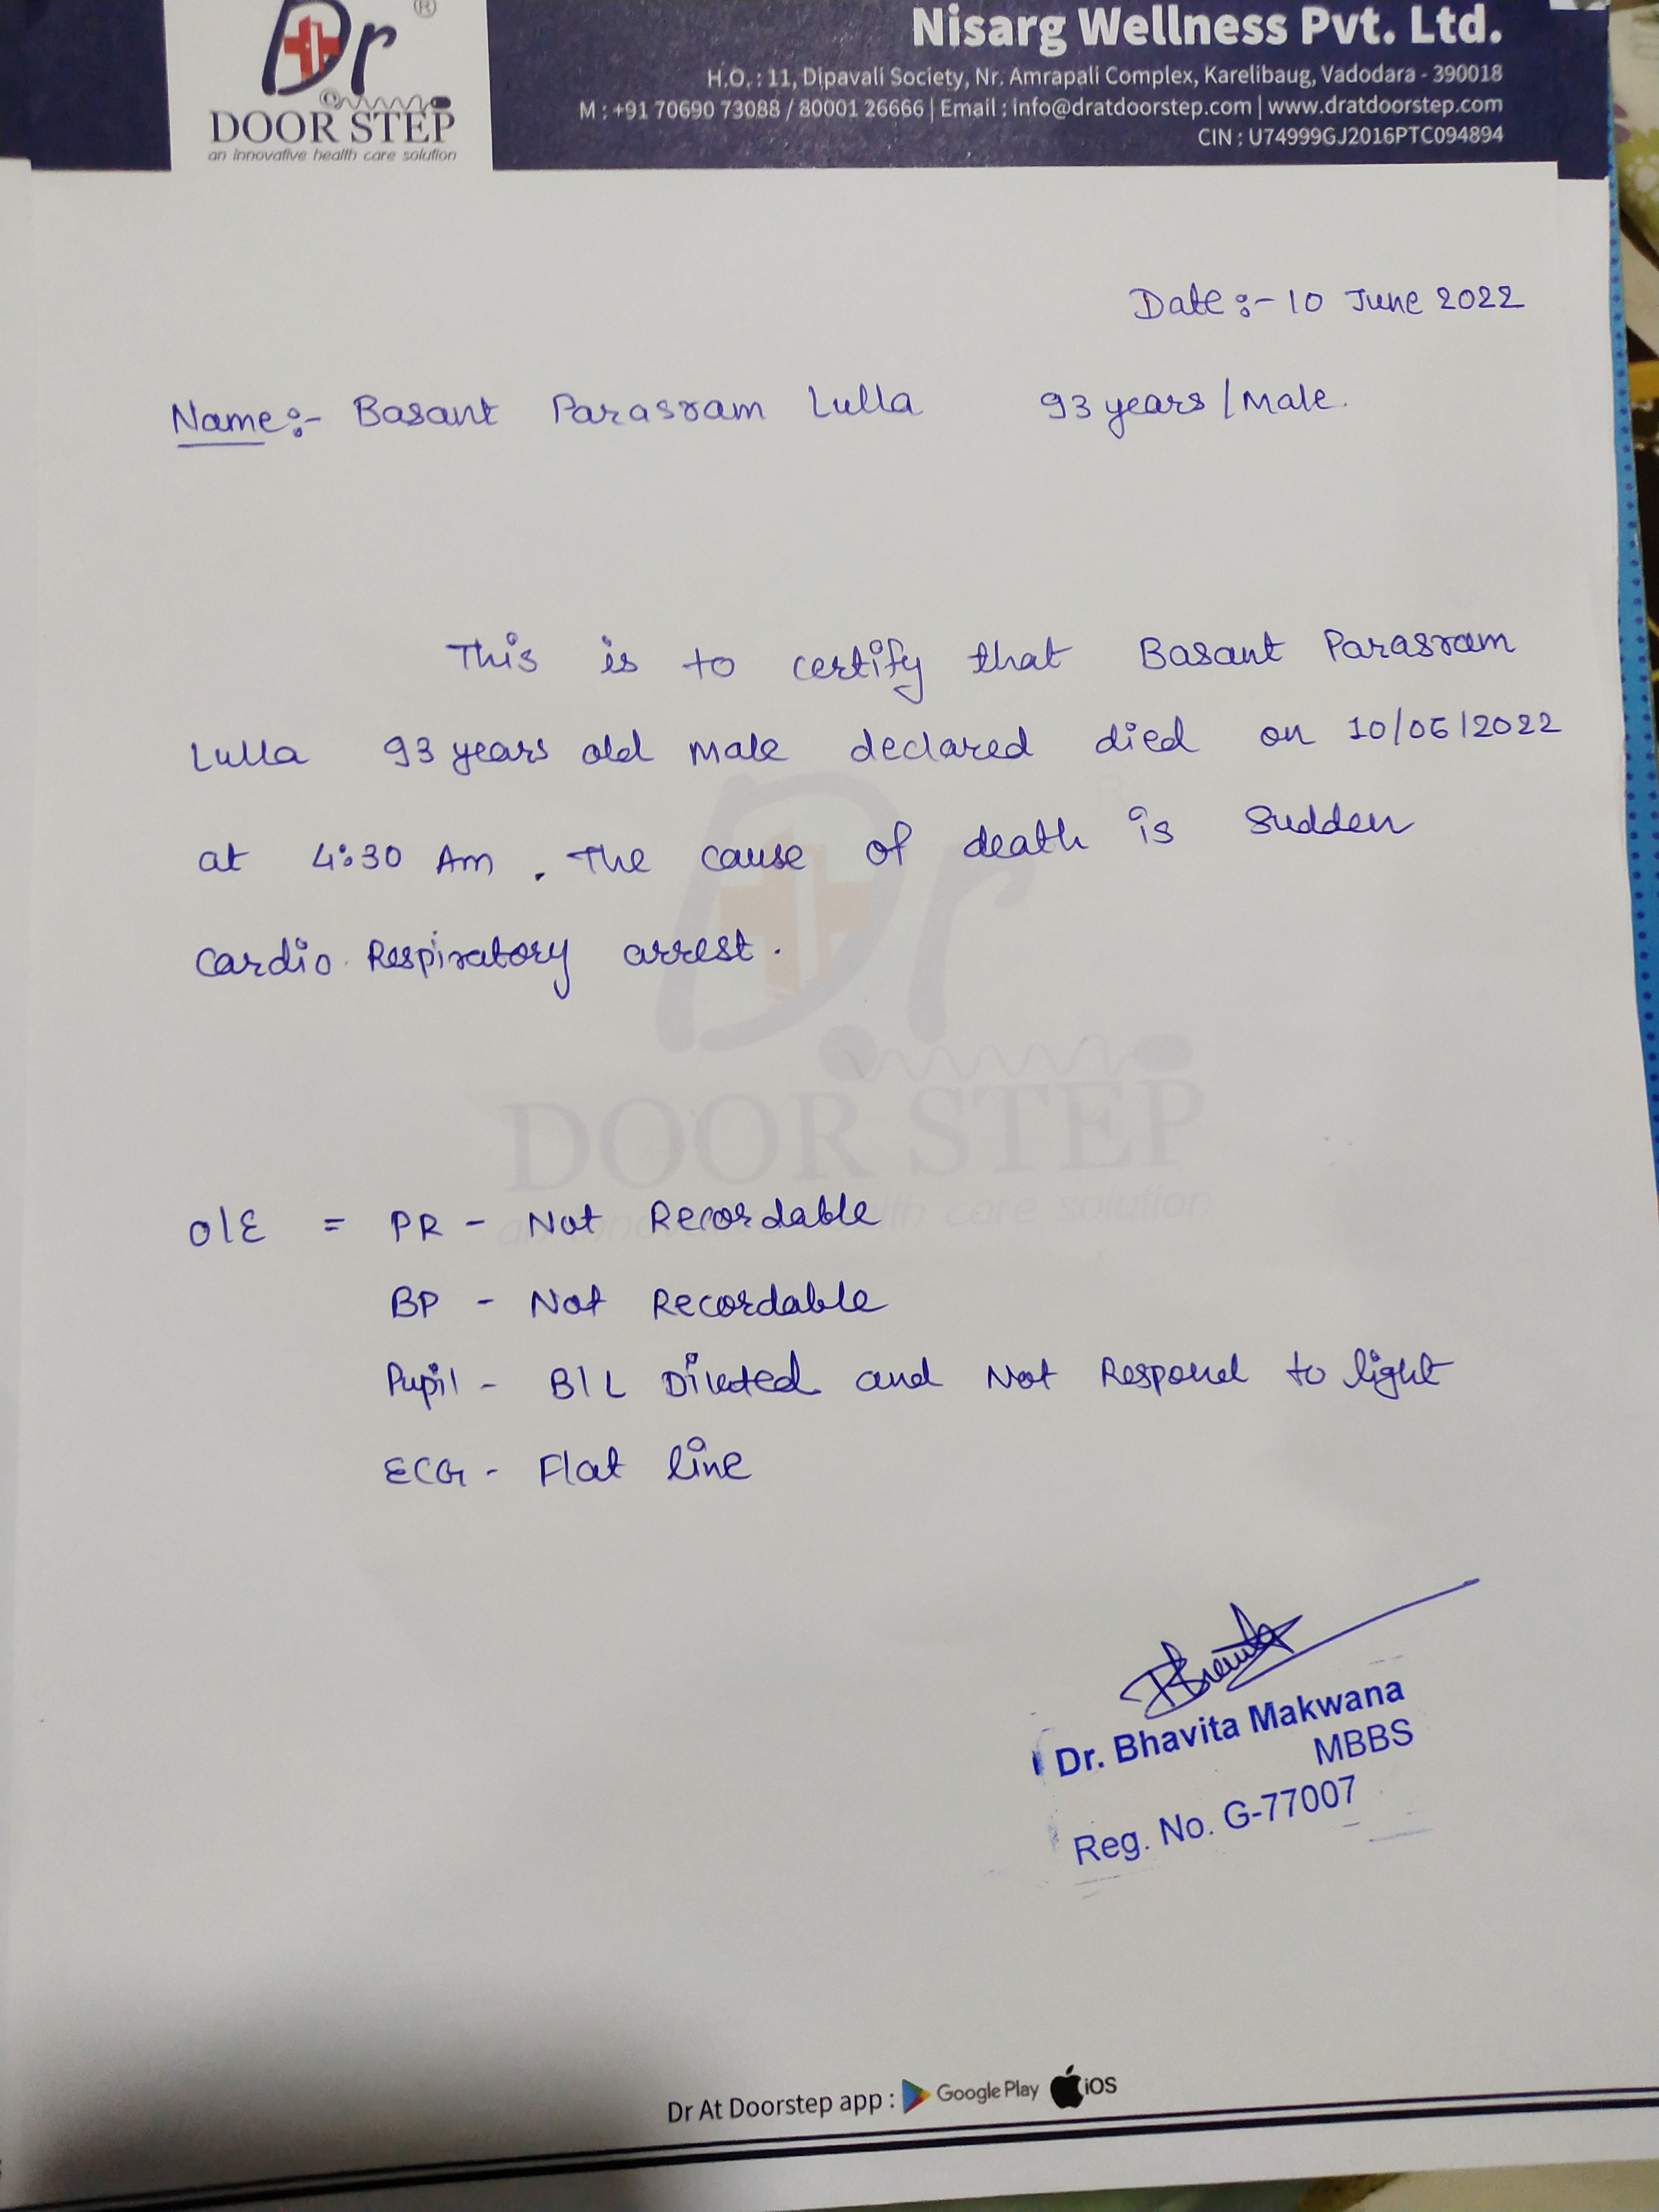 Dr ®
DOOR STEP
an innovative health care solution
Nisarg Wellness Pvt. Ltd.
H.O. : 11, Dipavali Society, Nr. Amrapali Complex, Karelibaug, Vadodara - 390018
M : +91 70690 73088 / 80001 26666 | Email : info@dratdoorstep.com | www.dratdoorstep.com
CIN : U74999GJ2016PTC094894
Date :- 10 June 2022
Name :- Basant Parasram Lulla 93 years / Male.
This is to certify that Basant Parasram
Lulla 93 years old male declared died on 10/06/2022
at 4:30 Am . The cause of death is Sudden
Cardio Respiratory arrest.
Dr
DOOR STEP
an innovative health care solution
O/E = PR - Not Recordable
BP - Not Recordable
Pupil - B/L Dilated and Not Respond to light
ECG - Flat line
Dr. Bhavita Makwana
MBBS
Reg. No. G-77007
Dr At Doorstep app : Google Play iOS